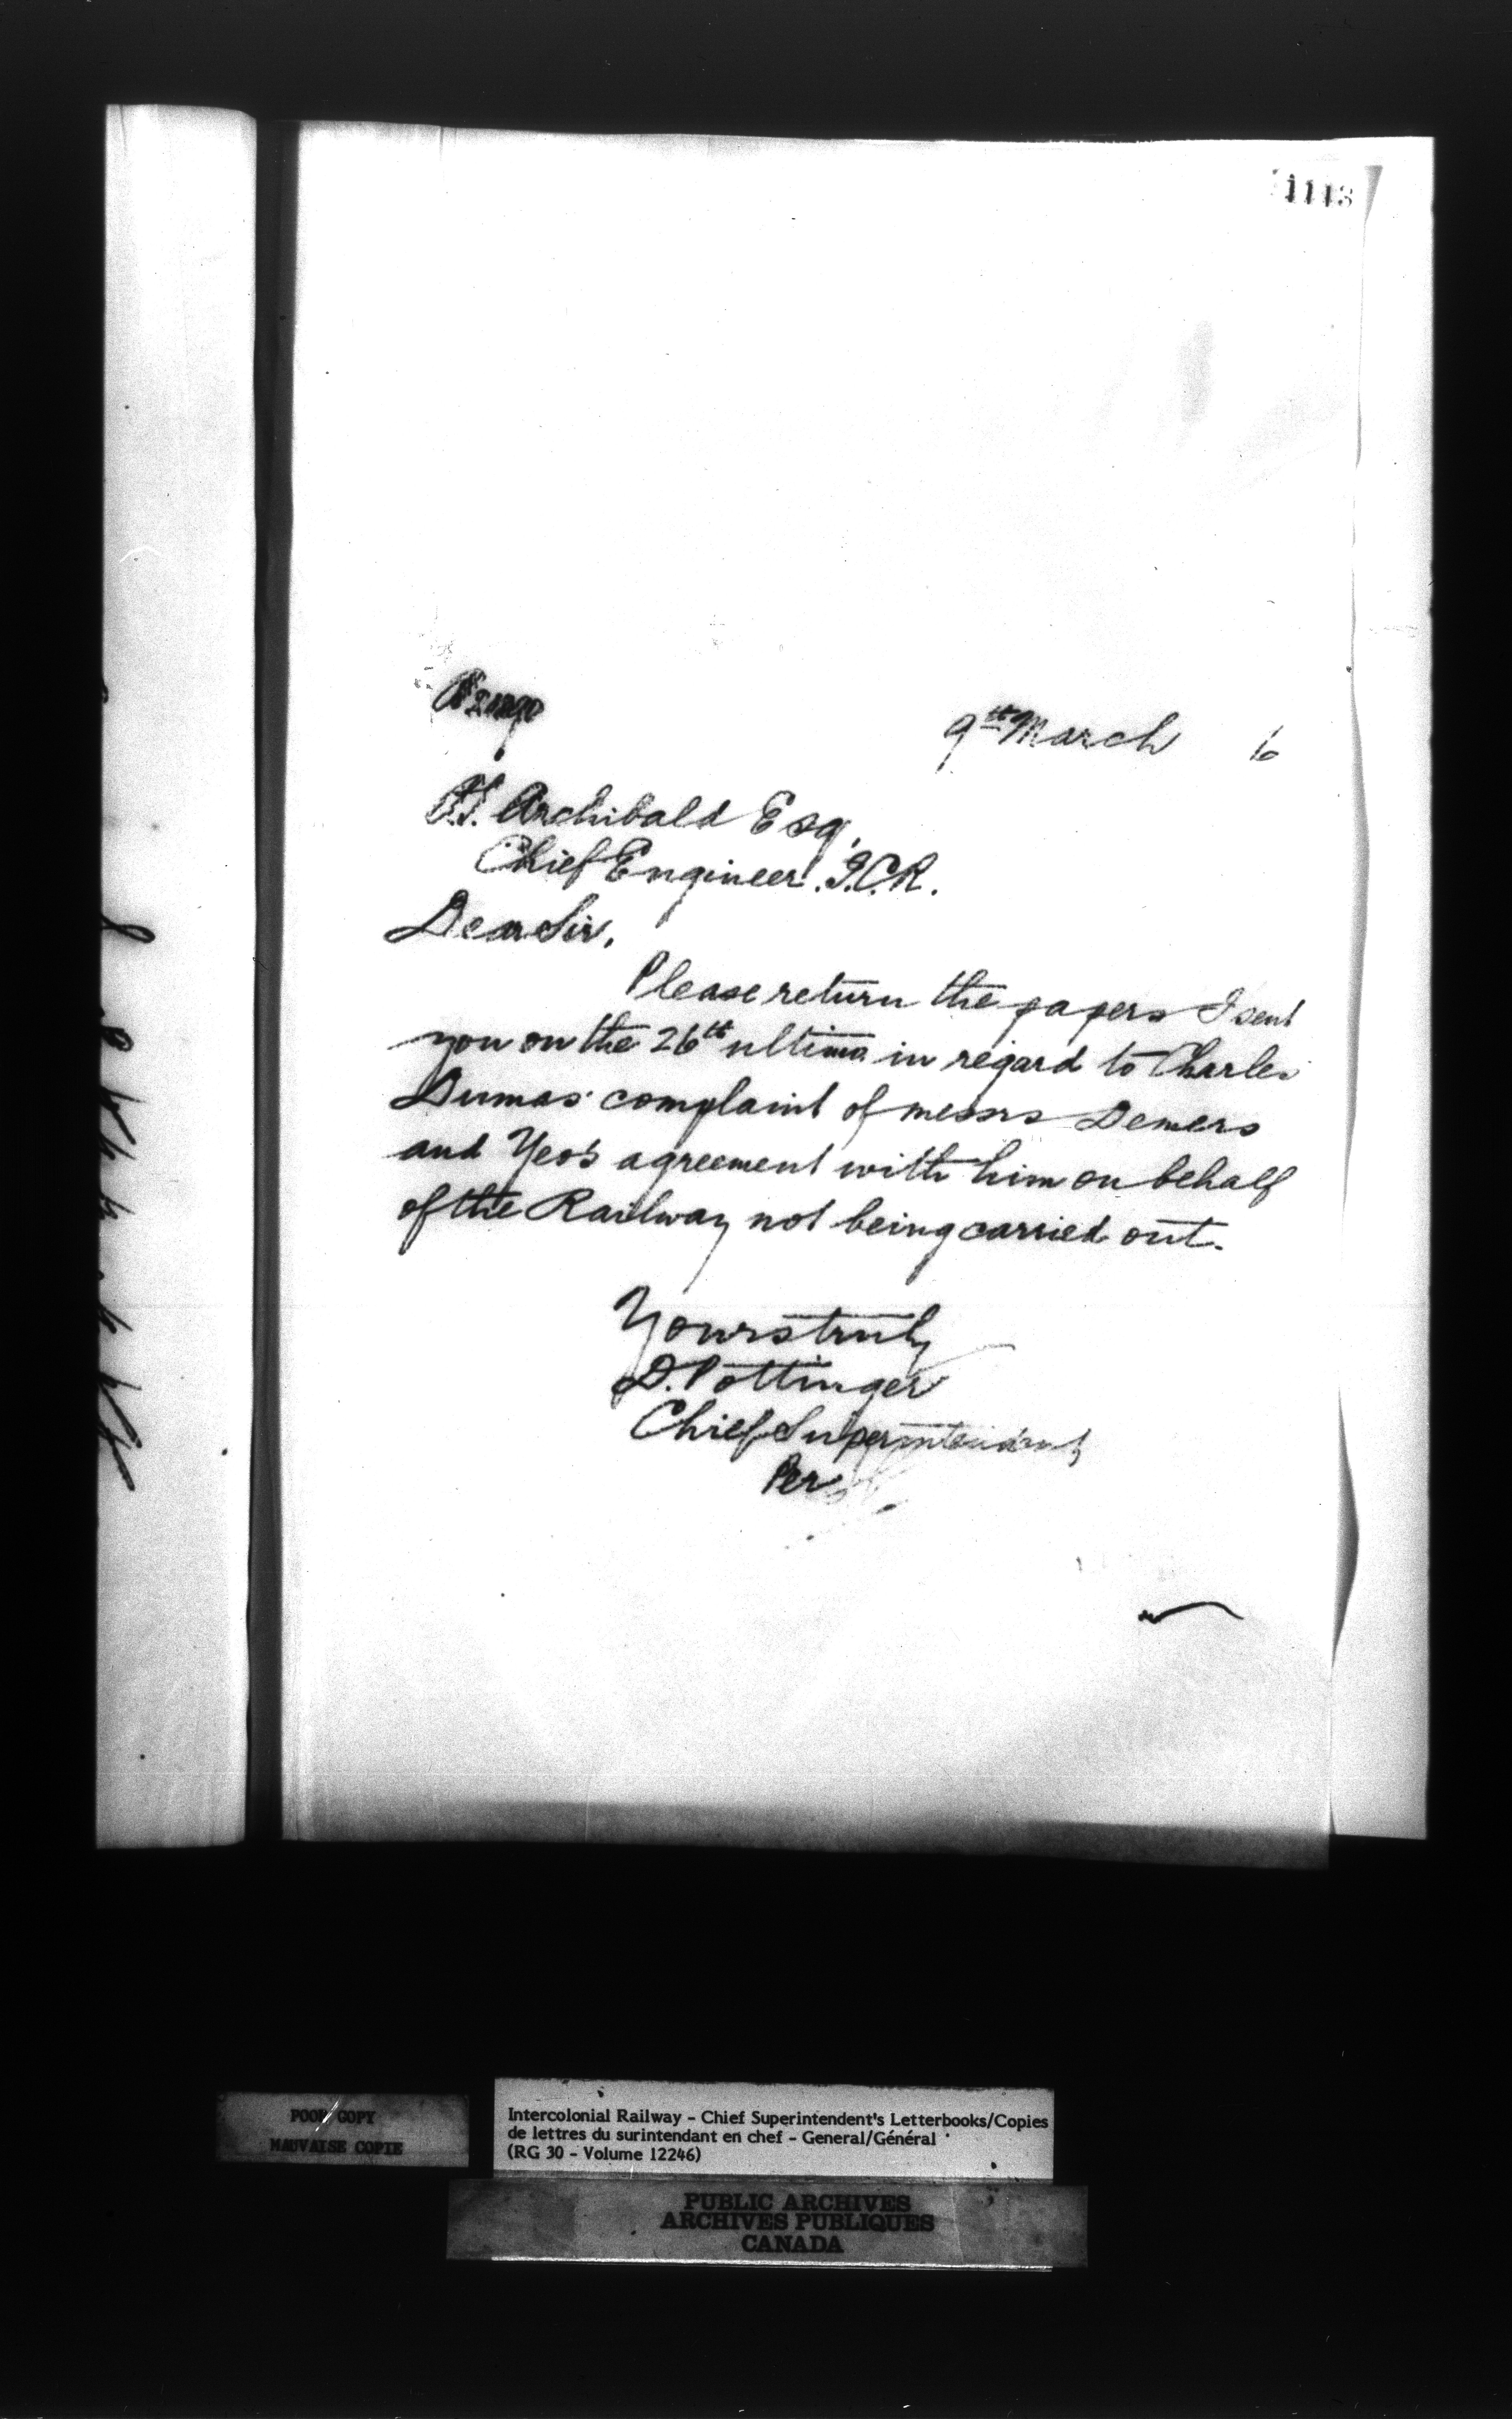 1143
9th March 6
Archibald Esq.
Chief Engineer. I.C.R.
Dear Sir,
Please return the papers I sent
you on the 26th ultimo in regard to Charles
Dumas' complaint of messrs Demers
and Yeo's agreement with him on behalf
of the Railway not being carried out.
Yours truly
D. Pottinger
Chief Superintendent
Per
POOR COPY
MAUVAISE COPIE
Intercolonial Railway - Chief Superintendent's Letterbooks/Copies
de lettres du surintendant en chef - General/Général
(RG 30 - Volume 12246)
PUBLIC ARCHIVES
ARCHIVES PUBLIQUES
CANADA